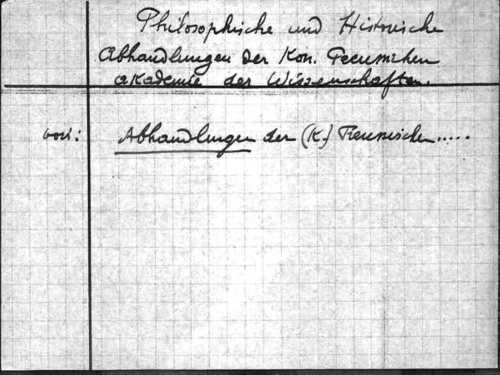 Philosophische und Historische
Abhandlungen der Kön. Preussischen
Akademie der Wissenschaften.
Abhandlungen der (K.) Preussischen.....